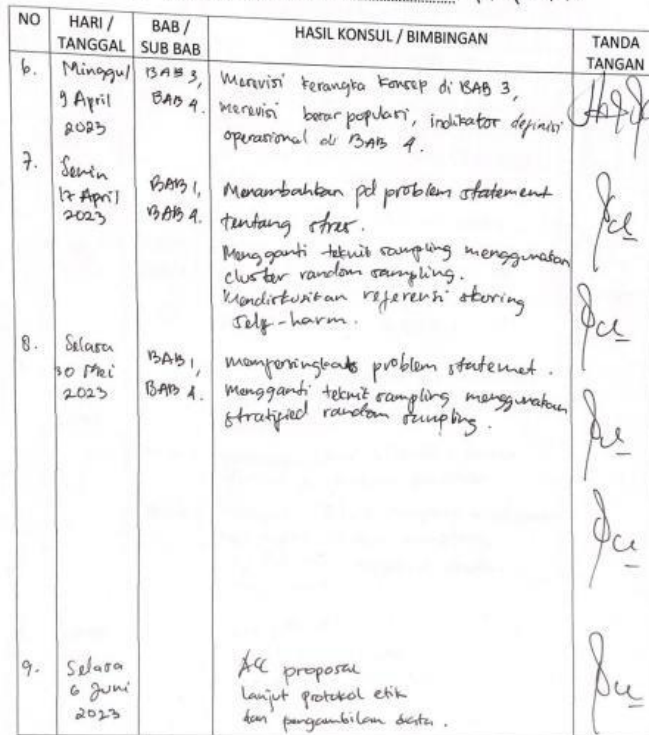 NO
HARI / TANGGAL
BAB / SUB BAB
HASIL KONSUL / BIMBINGAN
TANDA TANGAN
6.
Minggu/
9 April
2023
BAB 3,
BAB 4.
Merevisi kerangka konsep di BAB 3,
merevisi besar populasi, indikator definisi
operasional di BAB 4.
7.
Senin
17 April
2023
BAB 1,
BAB 4.
Menambahkan pd problem statement
tentang stres.
Mengganti teknik sampling menggunakan
cluster random sampling.
Mendiskusikan referensi skoring
self-harm.
8.
Selasa
30 Mei
2023
BAB 1,
BAB 4.
mempersingkat problem statemet.
Mengganti teknik sampling menggunakan
stratified random sampling.
9.
Selasa
6 Juni
2023
ACC proposal
Lanjut protokol etik
dan pengambilan data.